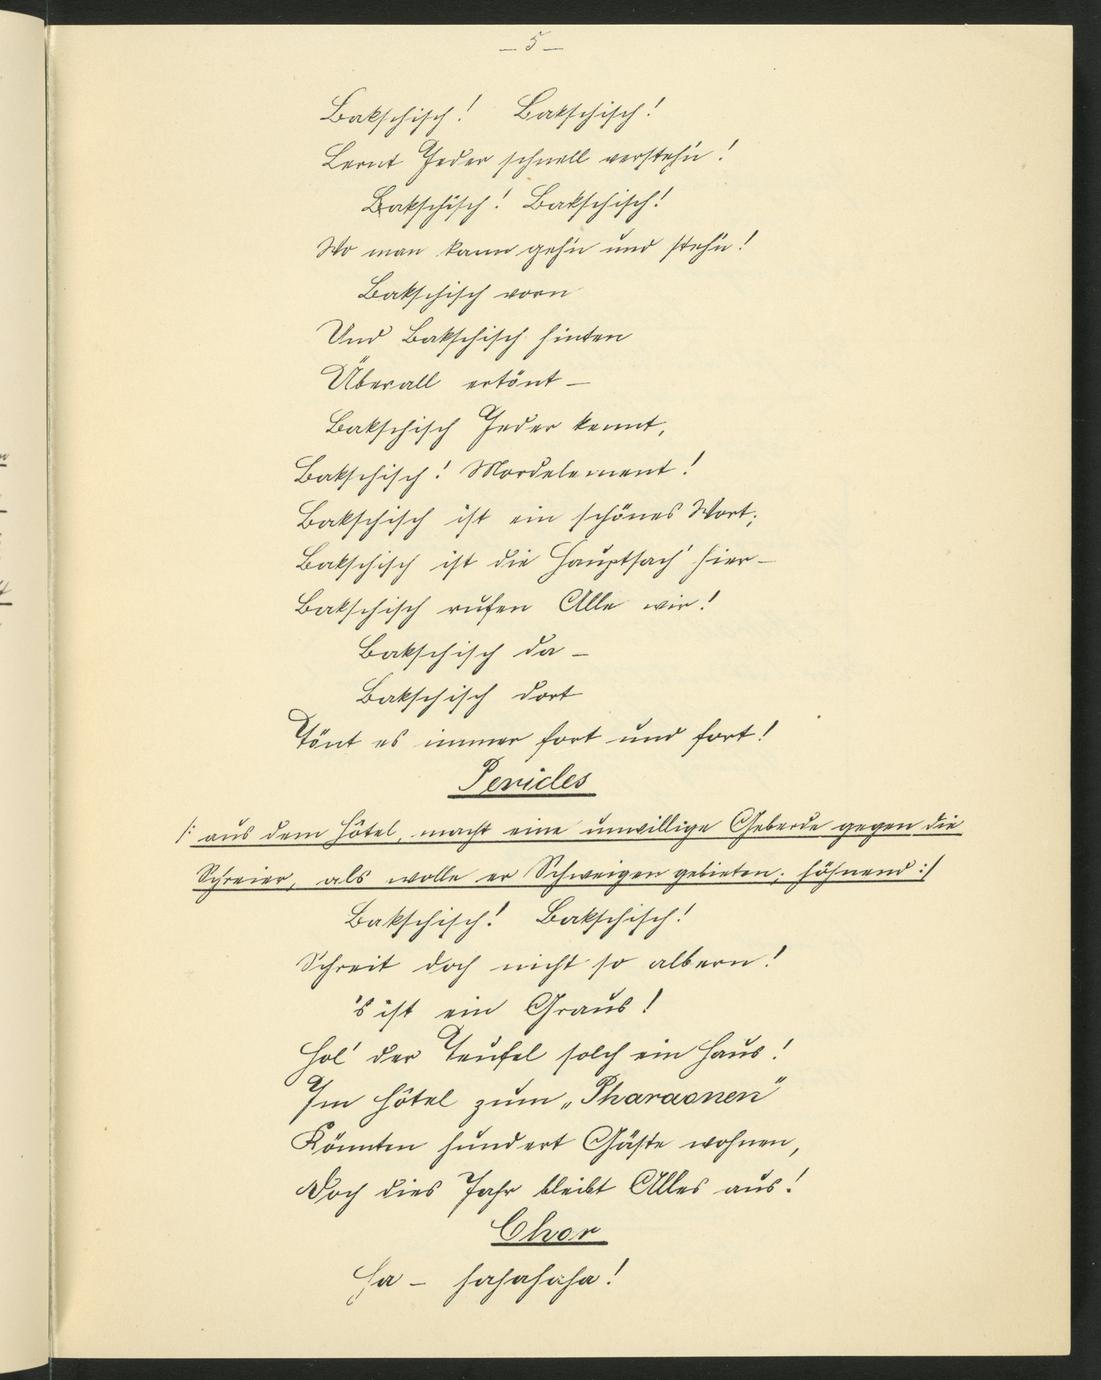 — 5 —
Bakschisch! Bakschisch!
Lernt Jeder schnell versteh'n!
Bakschisch! Bakschisch!
Wo man kann geh'n und steh'n!
Bakschisch vorn
Und Bakschisch hinten
Überall ertönt —
Bakschisch Jeder kennt,
Bakschisch! Mordelement!
Bakschisch ist ein schönes Wort;
Bakschisch ist die Hauptsach' hier —
Bakschisch rufen Alle wir!
Bakschisch da —
Bakschisch dort
Tönt es immer fort und fort!
Pericles
/: aus dem Hôtel, macht eine unwillige Geberde gegen die
Schreier, als wolle er Schweigen gebieten; höhnend :/
Bakschisch! Bakschisch!
Schreit doch nicht so albern!
's ist ein Graus!
Hol' der Teufel solch ein Haus!
Im Hôtel zum „Pharaonen"
Könnten hundert Gäste wohnen,
Doch dies Jahr bleibt Alles aus!
Chor
Ha — hahahaha!